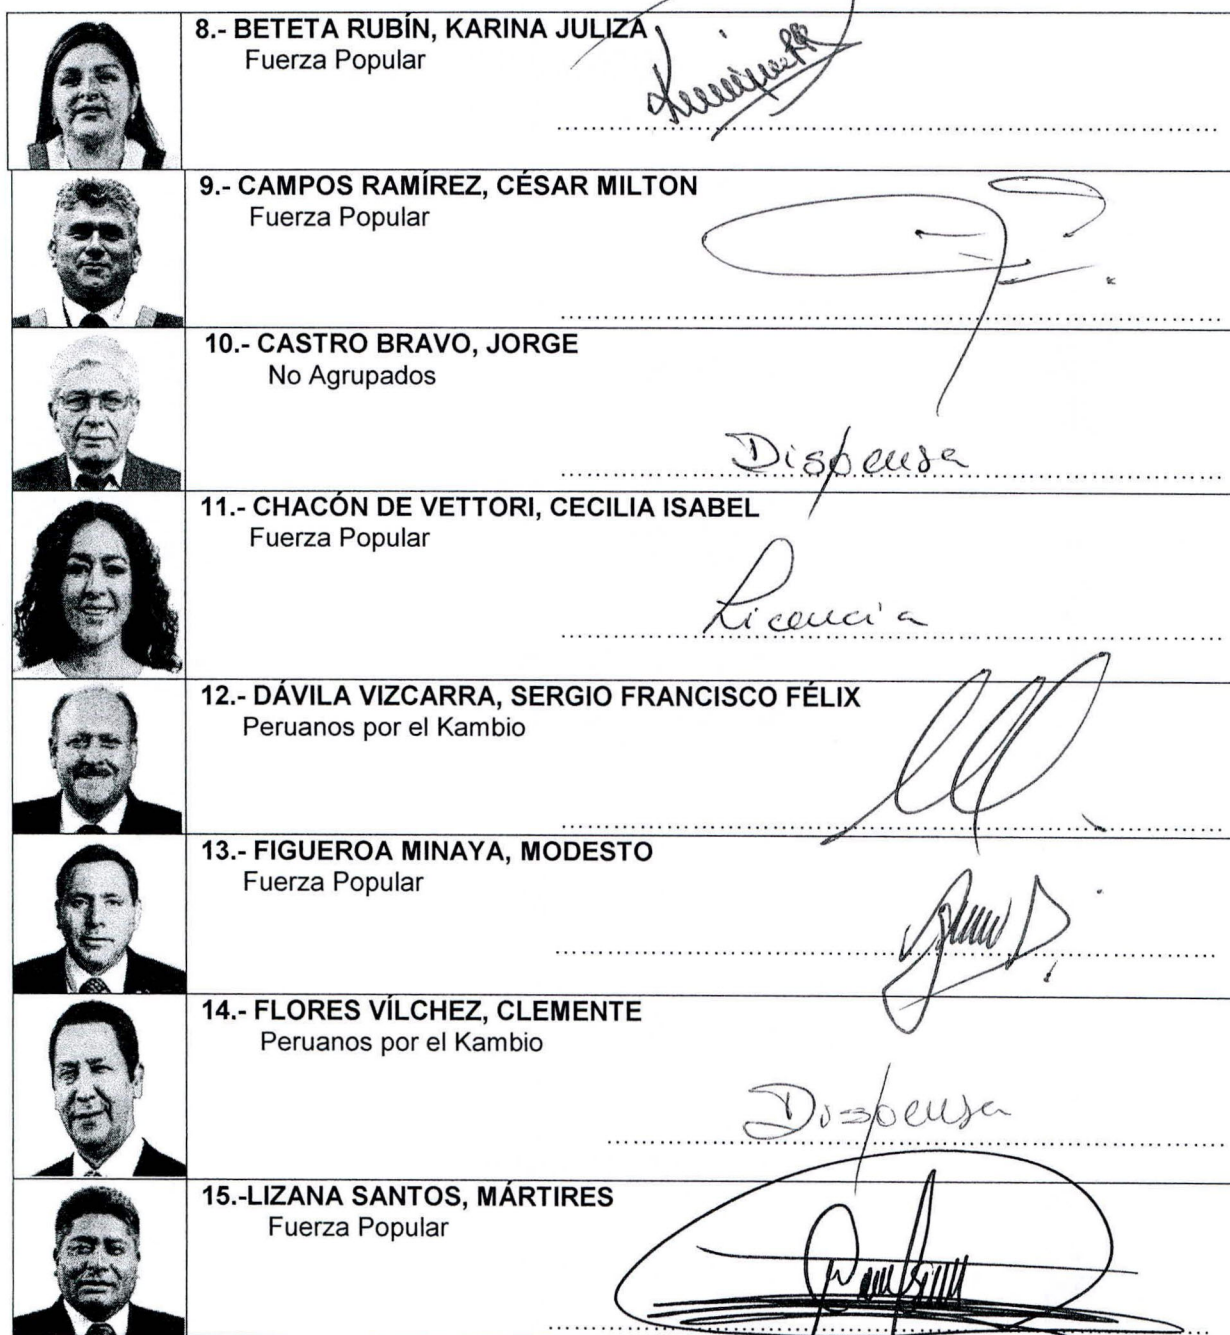 8.- BETETA RUBÍN, KARINA JULIZA
Fuerza Popular
9.- CAMPOS RAMÍREZ, CÉSAR MILTON
Fuerza Popular
10.- CASTRO BRAVO, JORGE
No Agrupados
Dispensa
11.- CHACÓN DE VETTORI, CECILIA ISABEL
Fuerza Popular
Licencia
12.- DÁVILA VIZCARRA, SERGIO FRANCISCO FÉLIX
Peruanos por el Kambio
13.- FIGUEROA MINAYA, MODESTO
Fuerza Popular
14.- FLORES VÍLCHEZ, CLEMENTE
Peruanos por el Kambio
Dispensa
15.-LIZANA SANTOS, MÁRTIRES
Fuerza Popular